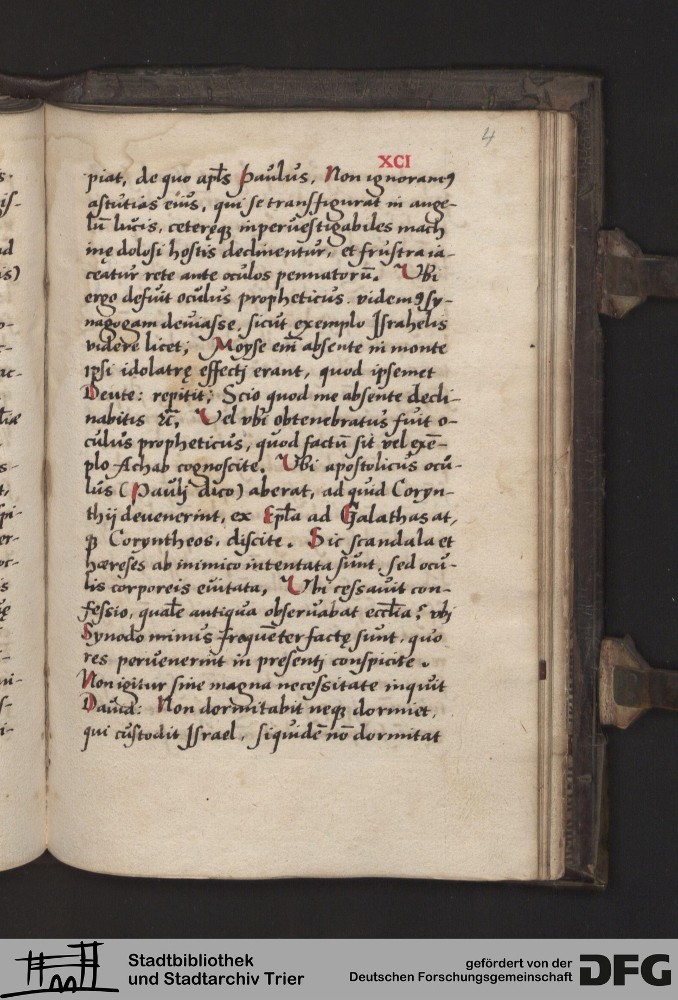 4
XCI
piat, de quo apl̃s Paulus, Non ignoramꝰ
astutias eius, qui se transfigurat in ange-
lũ lucis, ceteręqꝫ inperuestigabiles mach
inę dolosi hostis declinentur, et frustra ia-
ceatur rete ante oculos pennatorũ. Vbi
ergo defuit oculus propheticus. videmꝰ sy-
nagogam deuiasse, sicut exemplo Israhelis
videre licet; Moyse em̃ absente in monte
ipsi idolatrę effectj erant, quod ipsemet
Deute: repitit; Scio quod me absente decli-
nabitis ⁊c̃, Vel vbi obtenebratus fuit o-
culus propheticus, quod factũ sit vel exẽ-
plo Achab cognoscite. Vbi apostolicus ocu-
lus (Paulj dico) aberat, ad quid Coryn-
thij deuenerint, ex Epl̃a ad Galathas at,
qꝫ Coryntheos, discite. Sic scandala et
hæreses ab inimico intentata sunt, sed ocu-
lis corporeis euitata, Vbi cessauit con-
fessio, qual̃e antiqua obseruabat eccl̃ia? vbj
Synodo minus frequẽter factę sunt, quo
res peruenerint in presentj conspicite.
Non igitur sine magna necessitate inquit
Dauid: Non dormitabit neqꝫ dormiet,
qui custodit Israel, siquidẽ nõ dormitat
Stadtbibliothek
und Stadtarchiv Trier
gefördert von der
Deutschen Forschungsgemeinschaft
DFG